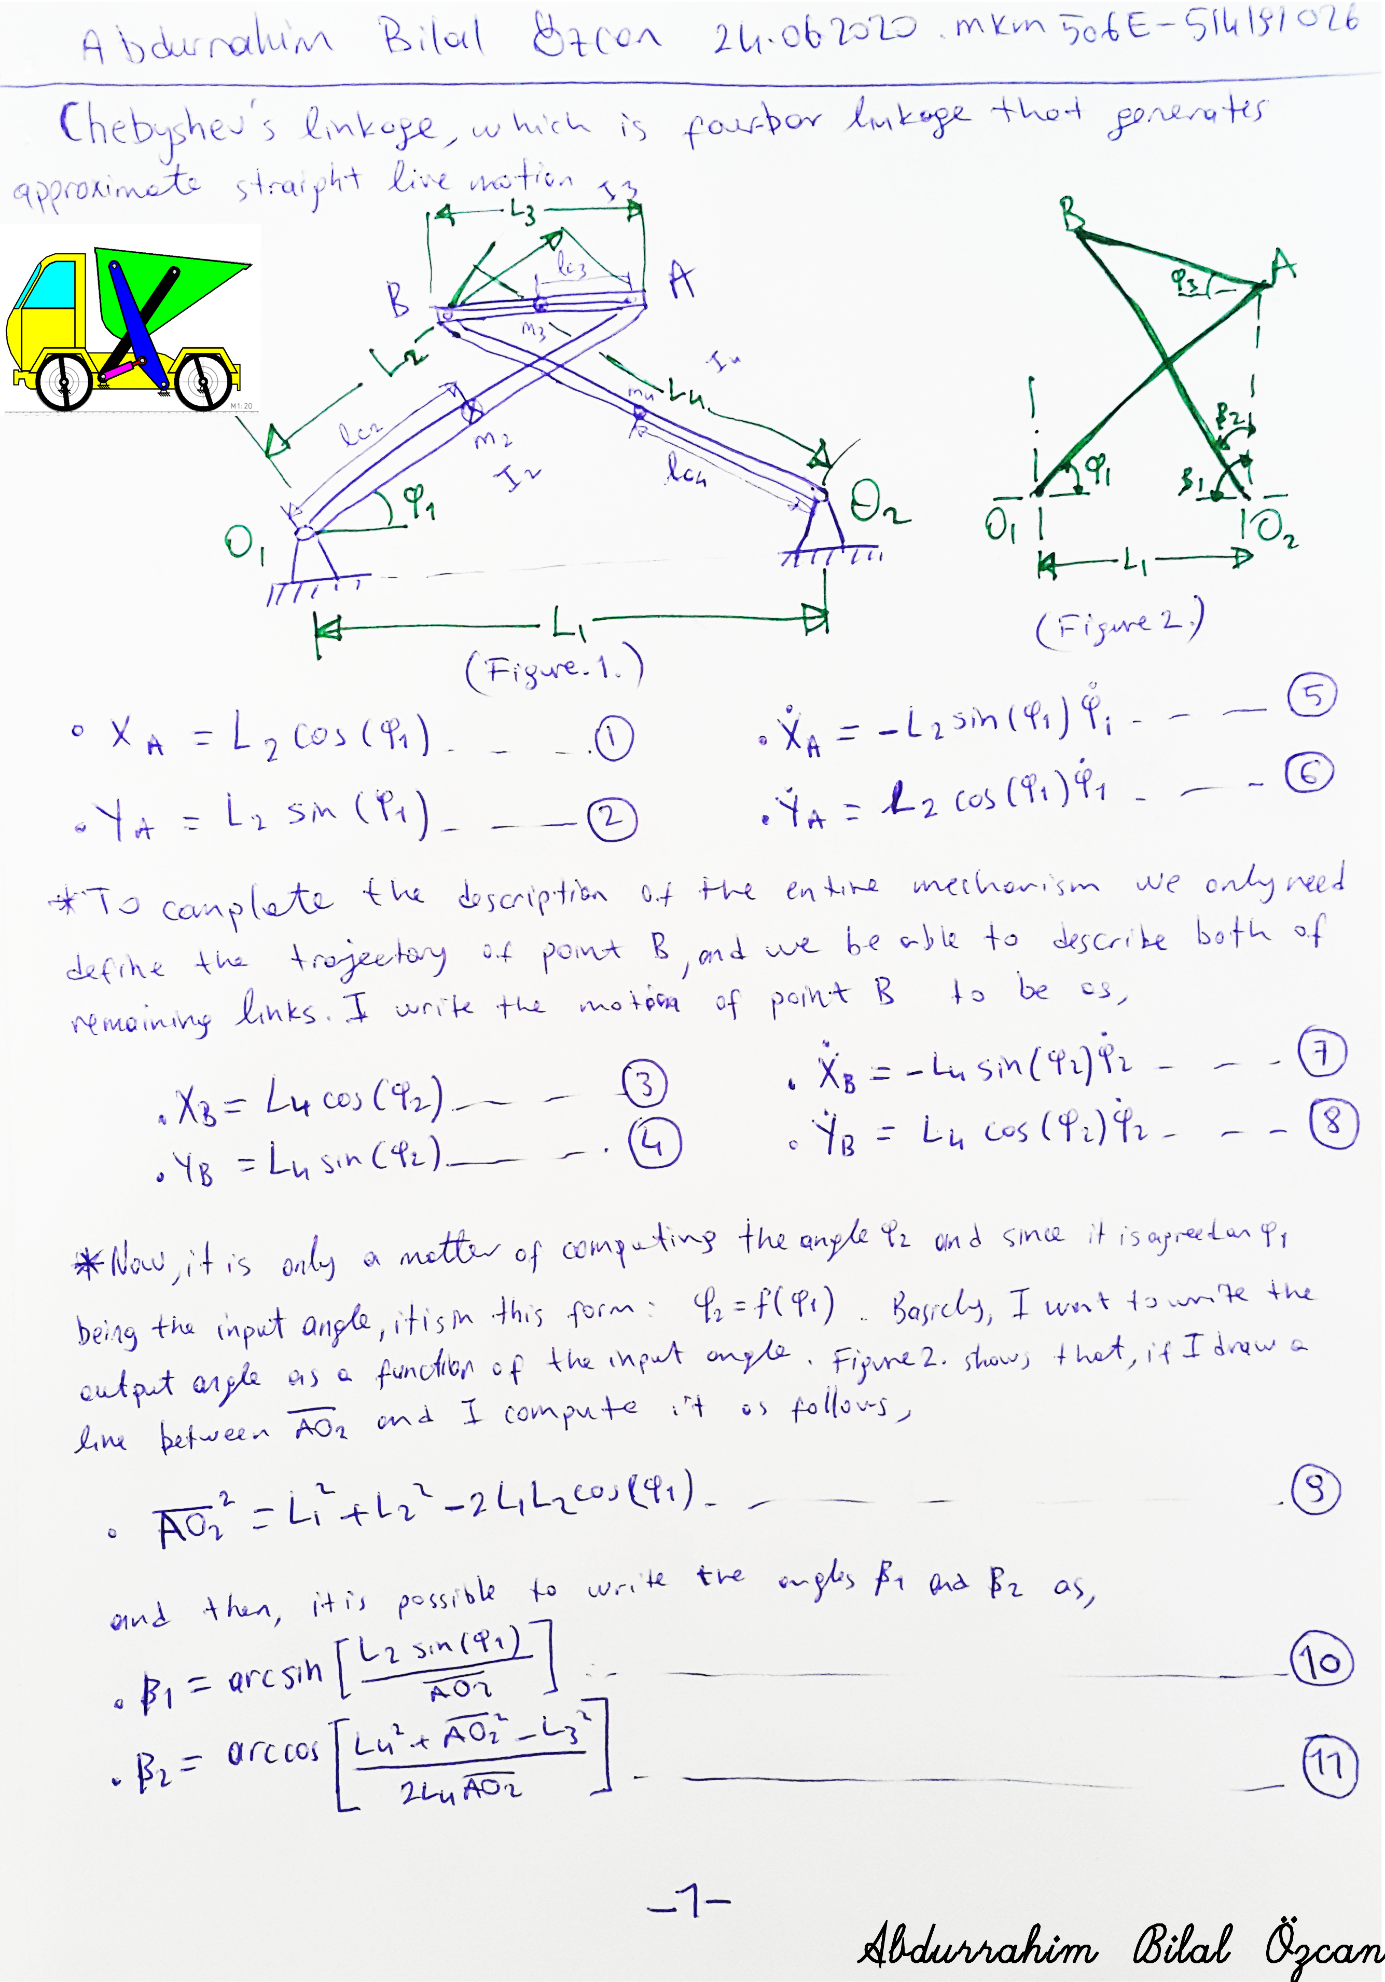 Abdurrahim Bilal Özcan 24.06.2020. mkm 506E-514191026
Chebyshev's linkage, which is fourbar linkage that generates
approximate straight live motion
I3
L3
lc3
B
A
m3
L2
lc2
m2
I2
I4
L4
m4
lc4
φ1
O1
O2
L1
(Figure.1.)
M1:20
B
A
φ3
β2
φ1
β1
O1
O2
L1
(Figure 2.)
• XA = L2 cos(φ1) - - - (1)
• ẊA = -L2 sin(φ1) φ̇1 - - - (5)
• YA = L2 sin (φ1) - - - (2)
• ẎA = L2 cos(φ1) φ̇1 - - - (6)
*To camplete the description of the entire mechanism we only need
define the trajectory of point B, and we be able to describe both of
remaining links. I write the motion of point B to be as,
• XB = L4 cos(φ2) - - - (3)
• ẊB = -L4 sin(φ2) φ̇2 - - - (7)
• YB = L4 sin(φ2) - - - (4)
• ẎB = L4 cos(φ2) φ̇2 - - - (8)
*Now, it is only a matter of computing the angle φ2 and since it is agreed on φ1
being the input angle, it is in this form: φ2 = f(φ1). Basicly, I want to write the
output angle as a function of the input angle. Figure 2. shows that, if I draw a
line between A̅O̅2 and I compute it as follows,
• A̅O̅2² = L1² + L2² - 2L1L2cos(φ1) - - - (9)
and then, it is possible to write the angles β1 and β2 as,
• β1 = arcsin [L2 sin(φ1) / A̅O̅2] - - - (10)
• β2 = arccos [L4² + A̅O̅2² - L3² / 2L4 A̅O̅2] - - - (11)
-1-
Abdurrahim Bilal Özcan